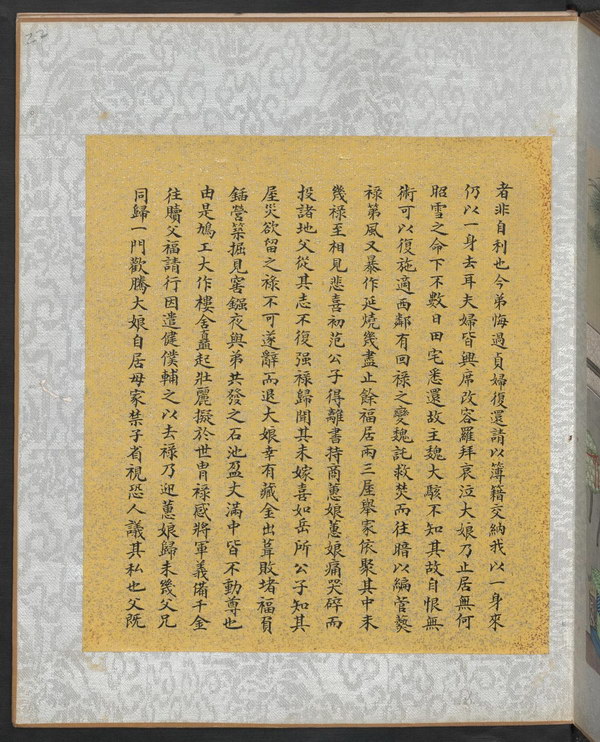 22
者非自利也今弟悔過貞婦復還請以簿籍交納我以一身來
仍以一身去耳夫婦皆興席改容羅拜哀泣大娘乃止居無何
昭雪之命下不數日田宅悉還故主魏大駭不知其故自恨無
術可以復施適西鄰有回祿之變魏託救焚而往暗以編菅爇
祿第風又暴作延燒幾盡止餘福居兩三屋舉家依聚其中未
幾祿至相見悲喜初范公子得離書持商蕙娘蕙娘痛哭碎而
投諸地父從其志不復强祿歸聞其未嫁喜如岳所公子知其
屋災欲留之祿不可遂辭而退大娘幸有藏金出葺敗堵福負
鍤營築掘見窖鏹夜與弟共發之石池盈丈滿中皆不動尊也
由是鳩工大作樓舍矗起壯麗擬於世冑祿感將軍義備千金
往贖父福請行因遣健僕輔之以去祿乃迎蕙娘歸未幾父兄
同歸一門歡騰大娘自居母家禁子省視恐人議其私也父既